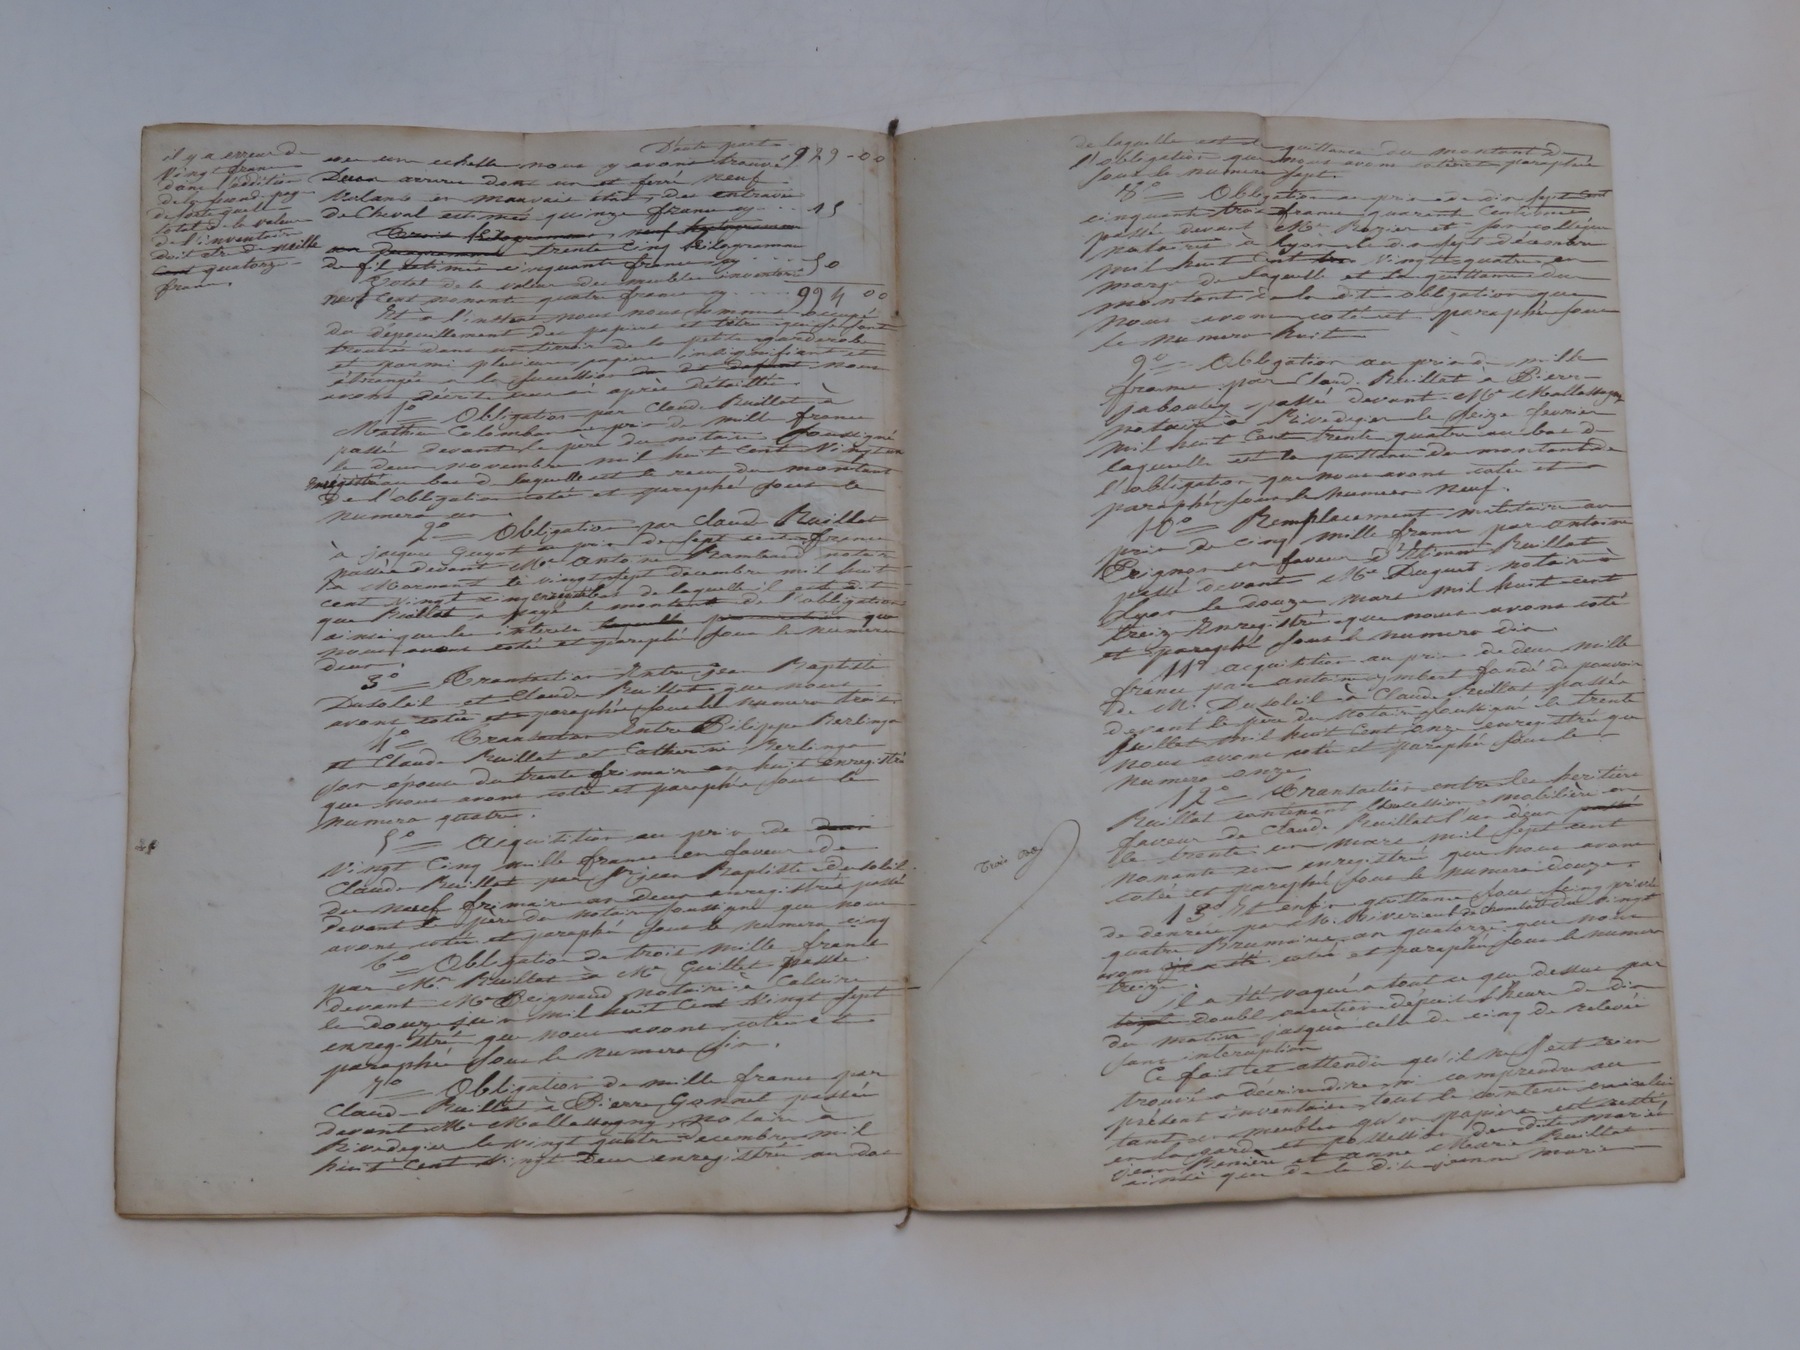 il y a erreur de
vingt francs
dans l'addition
de la
de sorte que le
total de la valeur
de l'inventaire
doit être de mille
quatorze
francs.
D'autre part 929-00
une echelle nous y avons trouvé
arrieres dont un est ferré neuf
en mauvais état, des entraves
de Cheval estimés quinze francs cy 15
trente cinq kilogrammes
de fil estimés cinquante francs cy 50
Total de la valeur des meubles inventoriés
neuf cent nonante quatre francs cy 994 00
Et à l'instant nous nous sommes occupé
du dépouillement des papiers et titres qui se sont
trouvés dans un tirroir de la petite garderobe
et parmi plusieurs papiers insignifiants et
étrangers à la succession du dt defunt nous
avons décrit ceux ci après détaillés.
1° = Obligation par Claude Ruillat à
Mathieu Colomban au prix de mille francs
passée devant le père du notaire soussigné
le deux novembre mil huit cent vingt un
enregistré au bas de laquelle est le reçu du montant
de l'obligation cotée et paraphé sous le
numero un.
2° = Obligation par Claude Ruillat
à Jacques Guyot au prix de sept cents francs
passée devant Me Antoine Rambaud notaire
à Mornant le vingt sept decembre mil huit
cent vingt cinq au bas de laquelle il est dit
que Ruillat a payé le montant de l'obligation
ainsi que les interets que
nous avons cotée et paraphé sous le numero
deux.
3° = Transaction Entre Jean Baptiste
Dusoleil et Claude Ruillat que nous
avons cotée et paraphée sous le numero trois.
4° = Transaction Entre Philippe Berlingo
et Claude Ruillat et Catherine Berlingo
son épouse du trente frimaire an huit enregistré
que nous avons cotée et paraphée sous le
numero quatre.
5° = Acquisition au prix de
vingt cinq mille francs en faveur de
Claude Ruillat par Sr Jean Baptiste Dusoleil
du neuf frimaire an deux enregistrée passé
devant le père du notaire soussigné que nous
avons cotée et paraphé sous le numero cinq
6° = Obligation de trois mille francs
par Mr Ruillat à Mr Guillet passée
devant Me notaire à Caluire
le douze juin mil huit cent vingt sept
enregistré que nous avons cotée et
paraphée sous le numero six.
7° = Obligation de mille francs par
Claude Ruillat à Pierre Gonnet passée
devant Me notaire à
Rivedegier le vingt quatre decembre mil
huit cent vingt deux enregistrée au dos
de laquelle est la quittance du montant de
l'obligation que nous avons cotée et paraphée
sous le numero sept.
8° = Obligation au prix de dix sept cent
cinquante trois francs quarante centimes
passée devant Me Rozier et son collègue
notaires à Lyon le dix sept décembre
mil huit cent vingt quatre en
marge de laquelle est la quittance du
montant de la dite obligation que
nous avons cotée et paraphé sous
le numero huit
9° = Obligation au prix de mille
francs par Claude Ruillat à Pierre
Jaboulay passée devant Me
notaire à Rivedegier le seize fevrier
mil huit cent trente quatre au bas de
laquelle est la quittance du montant de
l'obligation que nous avons cotée et
paraphé sous le numero neuf.
10° = Remplacement militaire au
prix de cinq mille francs par Antoine
Peignon en faveur d'Etienne Ruillat
passé devant Me Duguet notaire à
Lyon le douze mars mil huit cent
treize Enregistré que nous avons coté
et paraphé sous le numero dix
11° acquisition au prix de deux mille
francs par Antoine ymbert fondé de pouvoir
de Mr Dusoleil à Claude Ruillat passée
devant le père du notaire soussigné le trente
juillet mil huit cent onze enregistrée que
nous avons coté et paraphé sous le
numero onze
12° = Transaction entre les heritiers
Ruillat contenant succession mobilière en
faveur de Claude Ruillat l'un d'eux
le trente un mars mil sept cent
nonante un enregistrée que nous avons
cotée et paraphé sous le numero douze.
trois
13° Et enfin quittance sous seing privé
de denrées par Mr du vingt
quatre Brumaire an quatorze que nous
avons coté et paraphé sous le numero
treize
il a été vaqué à tout ce que dessus par
double vacation depuis l'heure de dix
du matin jusqu'à celle de cinq de relevée
sans interruption
Ce fait et attendu qu'il ne s'est rien
trouvé à décrire dire ni comprendre au
présent inventaire, tout le contenu en icelui
tant en meubles qu'en papiers est resté
en la garde et possession des dits mariés
Jean et Anne Marie Ruillat
ainsi que de la dite Jeanne Marie